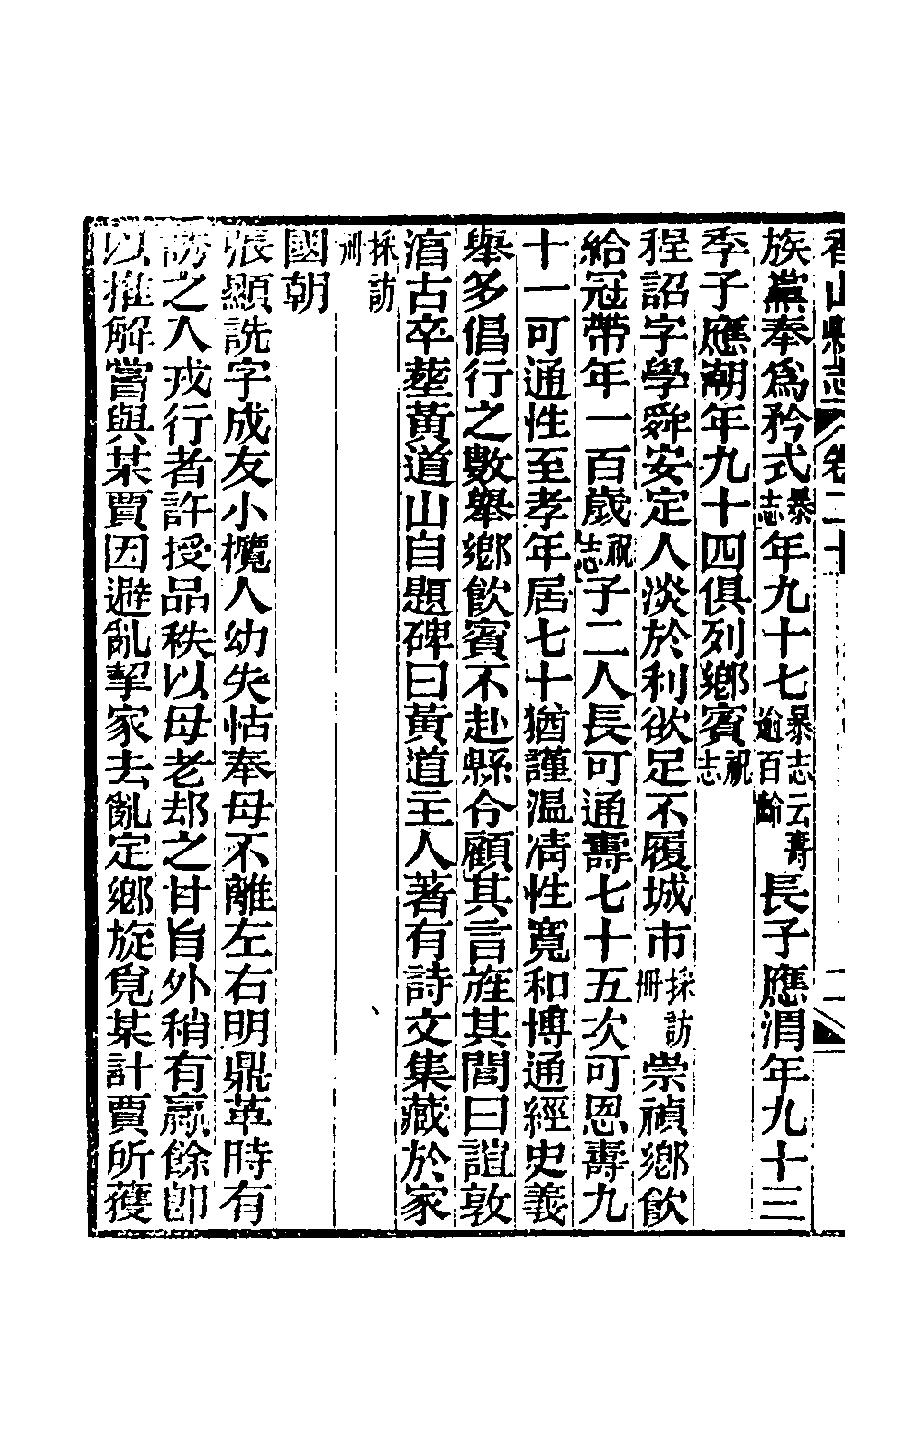 香山縣志 卷二十 二
族黨奉爲矜式暴志年九十七暴志云壽逾百齡長子應渭年九十三
季子應潮年九十四俱列鄉賓祝志
程詔字學舜安定人淡於利欲足不履城市採訪冊崇禎鄉飮
給冠帶年一百歲祝志子二人長可通壽七十五次可恩壽九
十一可通性至孝年居七十猶謹溫凊性寬和博通經史義
舉多倡行之數舉鄉飮賓不赴縣令顧其言旌其閭曰誼敦
滀古卒塟黃道山自題碑曰黃道主人著有詩文集藏於家
採訪冊
國朝
張顯詵字成友小欖人幼失怙奉母不離左右明鼎革時有
誘之入戎行者許授品秩以母老却之甘旨外稍有羸餘卽
以推解嘗與某賈因避亂挈家去亂定鄉旋覓某計賈所獲